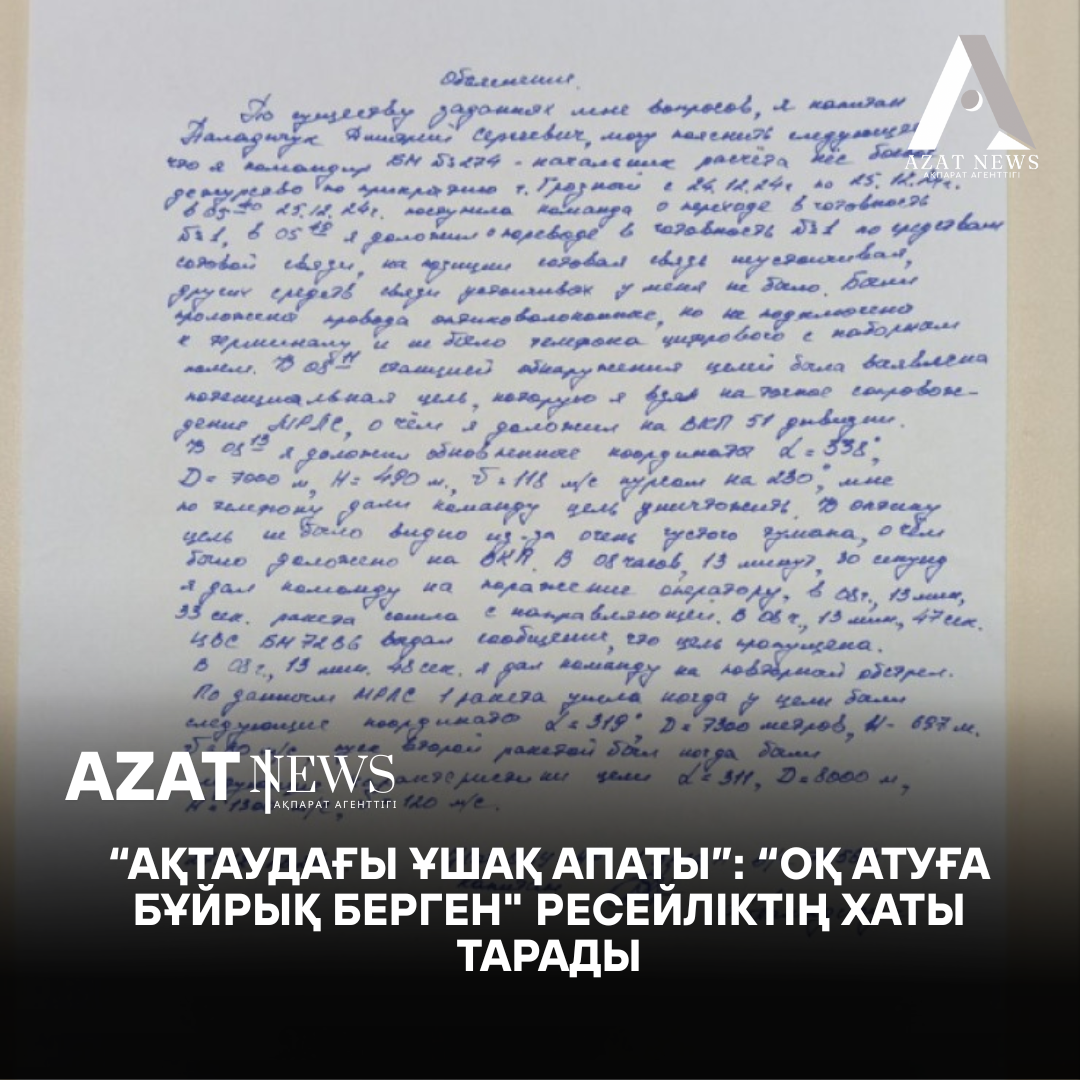 Объяснение.
По существу заданных мне вопросов, я капитан
Паладичук Дмитрий Сергеевич, могу пояснить следующее
что я командир БМ 72В6 - начальник расчёта нёс боевое
дежурство по прикрытию г. Грозный с 24.12.24г. по 25.12.24г.
В 05 40 25.12.24г. поступила команда о переходе в готовность
№1, в 05 я доложил о переводе в готовность №1 по средствам
сотовой связи, на позиции сотовая связь неустойчивая,
других средств связи устойчивых у меня не было. Были
проложены провода оптиковолоконные, но не подключены
к терминалу и не было телефона цифрового с наборным
полем. В 08 11 станцией обнаружения целей была выявлена
потенциальная цель, которую я взял на точное сопровож-
дение МРЛС, о чём я доложил на ВКП 51 дивизии.
В 08 13 я доложил обновленные координаты L = 338°,
D = 7000 м, H = 490 м., V = 118 м/с курсом на 230°, мне
по телефону дали команду цель уничтожить. В оптику
цель не было видно из-за очень густого тумана, о чём
было доложено на ВКП. В 08 часов, 13 минут, 30 секунд
я дал команду на поражение оператору, в 08г., 13 мин,
33 сек. ракета сошла с направляющей. В 08 ч., 13 мин., 47 сек.
ЦВС БМ 72В6 выдал сообщение, что цель пропущена.
В 08г., 13 мин. 48 сек. я дал команду на повторный обстрел.
По данным МРЛС 1 ракета ушла когда у цели были
следующие координаты L = 319°, D = 7300 метров, H - 697 м.
пуск второй ракетой был когда были
цели L = 311, D = 8000 м,
120 м/с.
AZAT NEWS
АҚПАРАТ АГЕНТТІГІ
AZAT NEWS
АҚПАРАТ АГЕНТТІГІ
“АҚТАУДАҒЫ ҰШАҚ АПАТЫ”: “ОҚ АТУҒА
БҰЙРЫҚ БЕРГЕН" РЕСЕЙЛІКТІҢ ХАТЫ
ТАРАДЫ